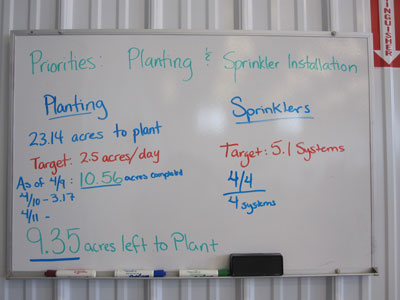 INGUISHER
Priorities: Planting & Sprinkler Installation
Planting
23.14 acres to plant
Target: 2.5 acres/day
As of 4/9: 10.56 acres completed
4/10 - 3.17
4/11 -
9.35 acres left to Plant
Sprinklers
Target: 5.1 Systems
4/4
4 systems